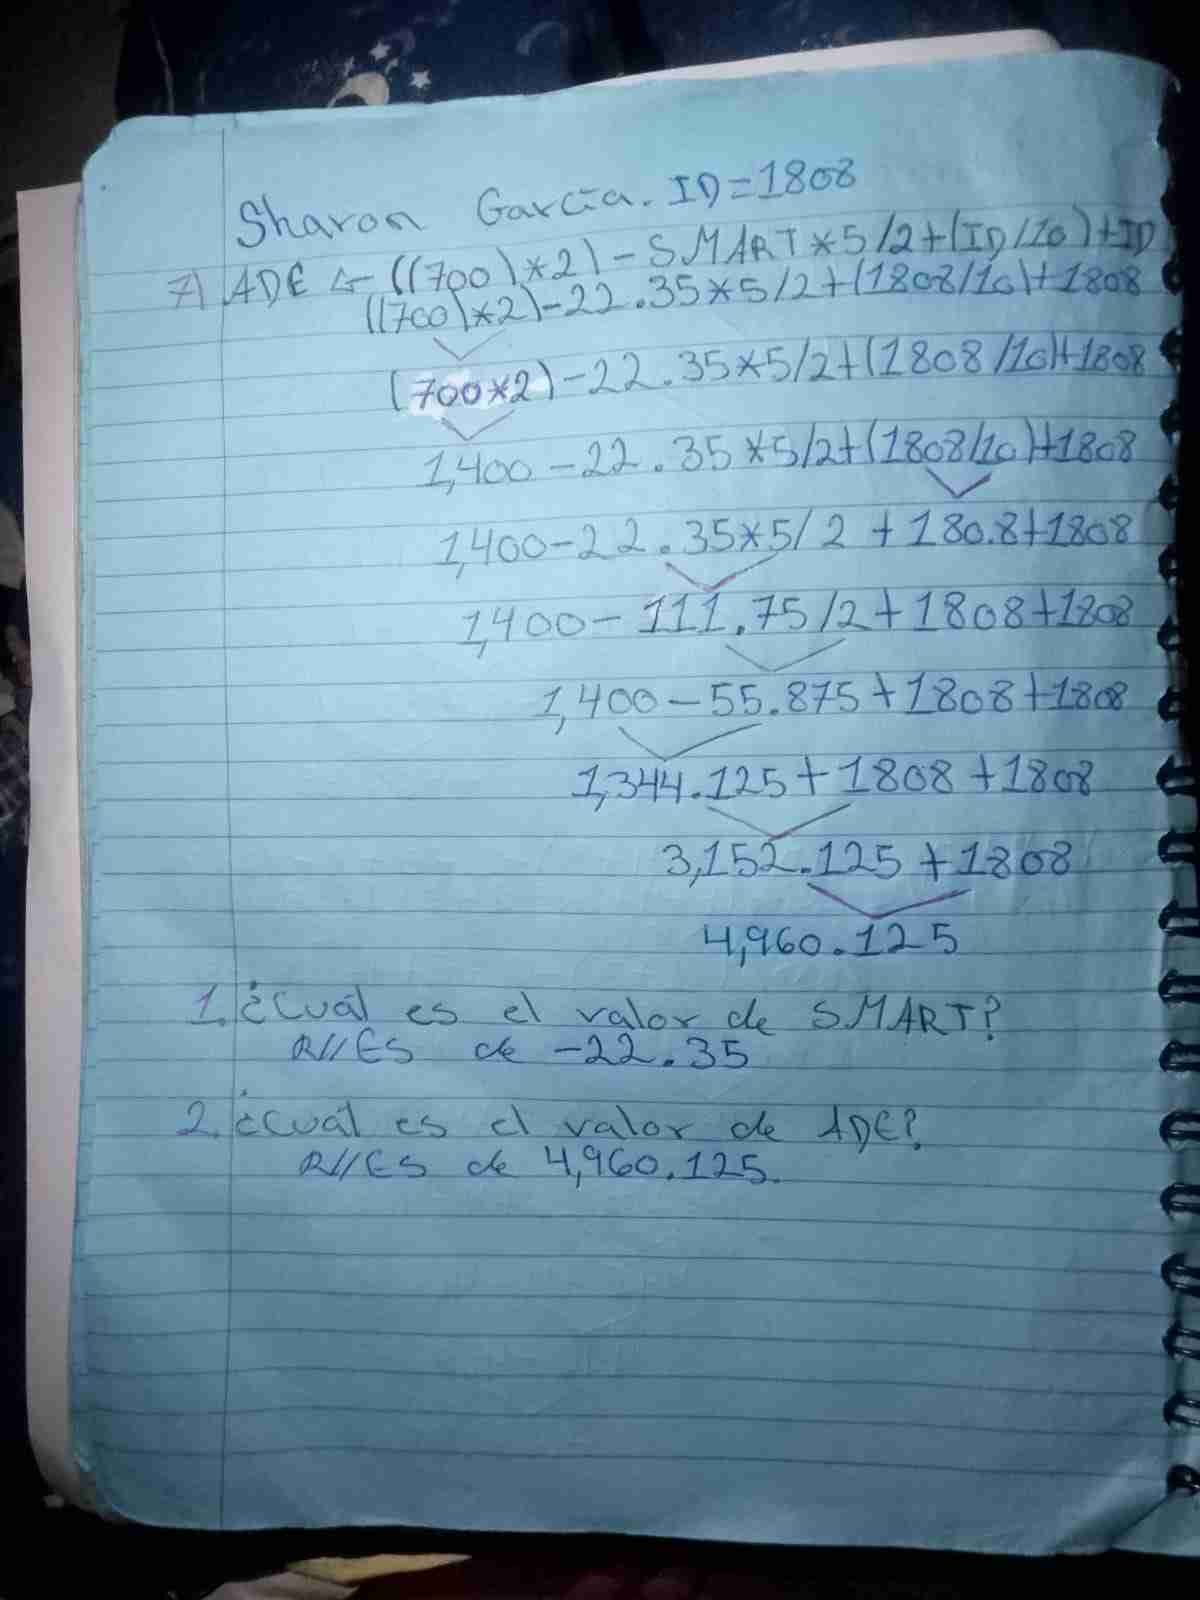 Sharon García. ID=1808
7) ADE ← ((700)*2)-SMART*5/2+(ID/10)+ID
((700)*2)-22.35*5/2+(1808/10)+1808
(700*2)-22.35*5/2+(1808/10)+1808
1,400-22.35*5/2+(1808/10)+1808
1,400-22.35*5/2+180.8+1808
1,400-111.75/2+1808+1808
1,400-55.875+1808+1808
1,344.125+1808+1808
3,152.125+1808
4,960.125
1. ¿Cuál es el valor de SMART?
R// ES de -22.35
2. ¿Cuál es el valor de ADE?
R// ES de 4,960.125.